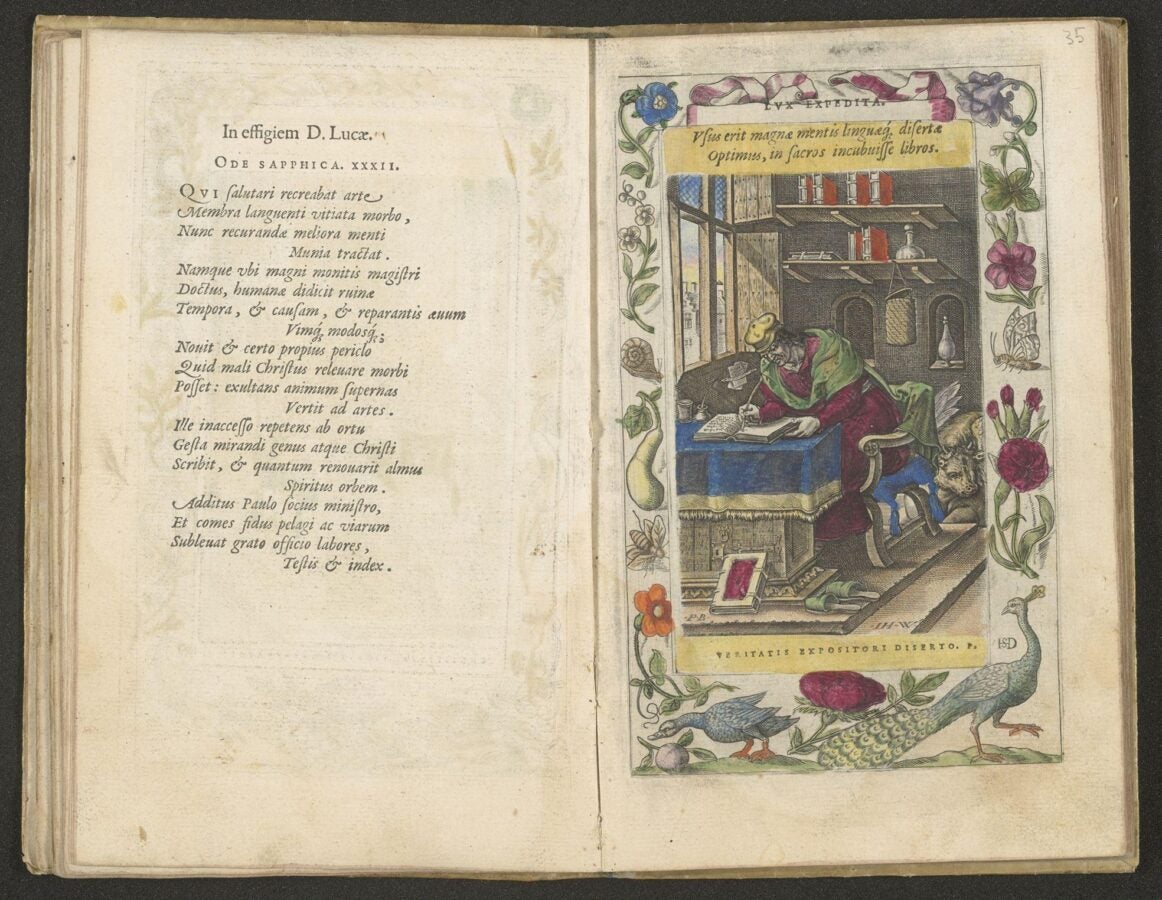 In effigiem D. Lucæ.
ODE SAPPHICA. XXXII.
QVI ſalutari recreabat arte
Membra languenti vitiata morbo,
Nunc recurandæ meliora menti
Munia tractat.
Namque vbi magni monitis magiſtri
Doctus, humanæ didicit ruinæ
Tempora, & cauſam, & reparantis æuum
Vimq́, modosq́;
Nouit & certo propius periclo
Quid mali Chriſtus releuare morbi
Poſſet: exultans animum ſupernas
Vertit ad artes.
Ille inacceſſo repetens ab ortu
Geſta mirandi genus atque Chriſti
Scribit, & quantum renouarit almus
Spiritus orbem.
Additus Paulo ſocius miniſtro,
Et comes fidus pelagi ac viarum
Subleuat grato officio labores,
Teſtis & index.
35
LVX EXPEDITA.
Vſus erit magnæ mentis linguæq́, diſertæ
Optimus, in ſacros incubuiſſe libros.
P.B
IH·W
HSD
VERITATIS EXPOSITORI DISERTO. P.